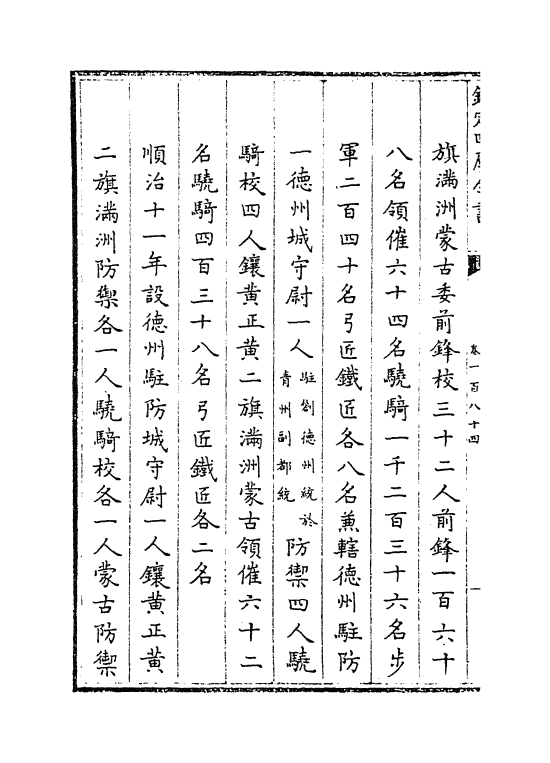 欽定四庫全書
卷一百八十四
旗滿洲蒙古委前鋒校三十二人前鋒一百六十
八名領催六十四名驍騎一千二百三十六名步
軍二百四十名弓匠鐵匠各八名兼轄德州駐防
一德州城守尉一人駐劄德州統於青州副都統防禦四人驍
騎校四人鑲黃正黃二旗滿洲蒙古領催六十二
名驍騎四百三十八名弓匠鐵匠各二名
順治十一年設德州駐防城守尉一人鑲黃正黃
二旗滿洲防禦各一人驍騎校各一人蒙古防禦